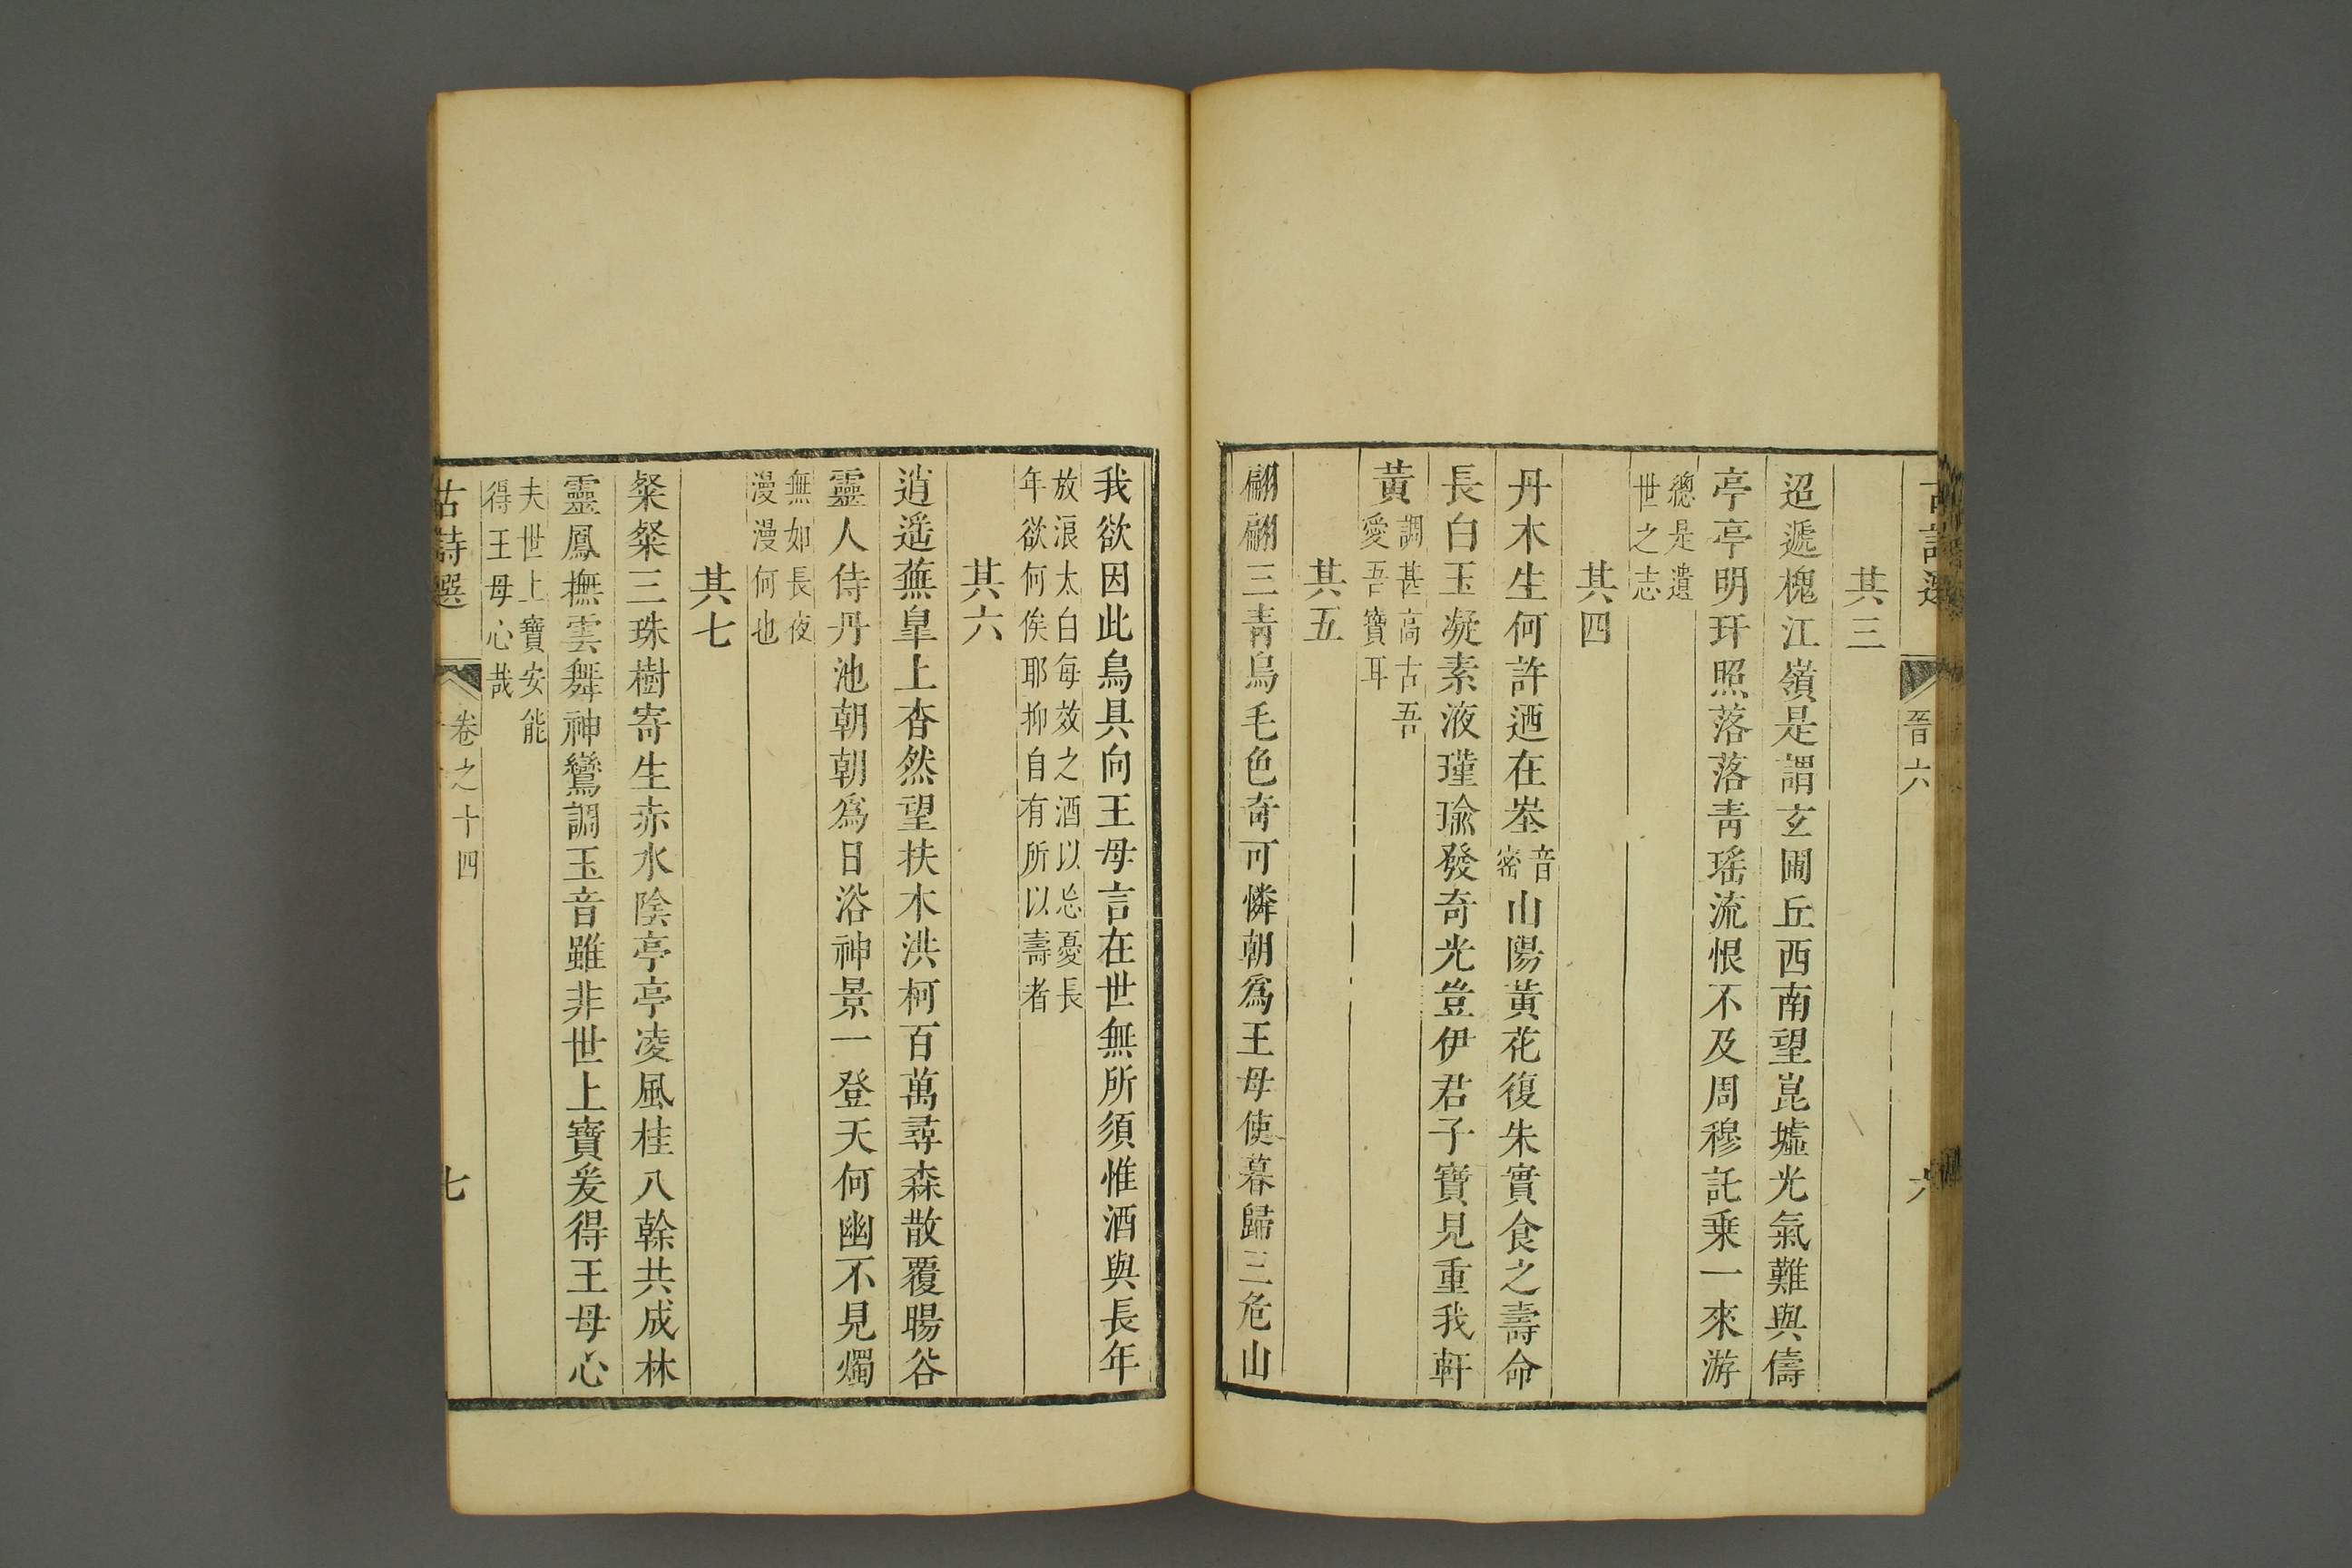 古詩選
晉六
六
其三
迢遞槐江嶺是謂玄圃丘西南望崑墟光氣難與儔
亭亭明玕照落落青瑤流恨不及周穆託乗一來游
總是遺
世之志
其四
丹木生何許迺在峚音密山陽黃花復朱實食之壽命
長白玉凝素液瑾瑜發奇光豈伊君子寶見重我軒
黃調甚高古吾
愛吾寶耳
其五
翩翩三靑鳥毛色奇可憐朝爲王母使暮歸三危山
我欲因此鳥具向王母言在世無所須惟酒與長年
放浪太白每效之酒以忘憂長
年欲何俟耶抑自有所以壽者
其六
逍遥蕪臯上杳然望扶木洪柯百萬尋森散覆暘谷
靈人侍丹池朝朝爲日浴神景一登天何幽不見燭
無如長夜
漫漫何也
其七
粲粲三珠樹寄生赤水陰亭亭凌風桂八榦共成林
靈鳳撫雲舞神鸞調玉音雖非世上寶爰得王母心
夫世上寶安能
得王母心哉
古詩選
卷之十四
七